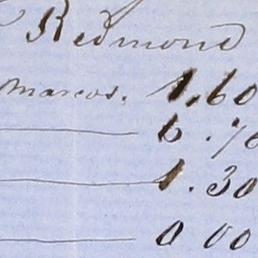 Redmond
marcos. 1,60
6.70
1.30
0 00